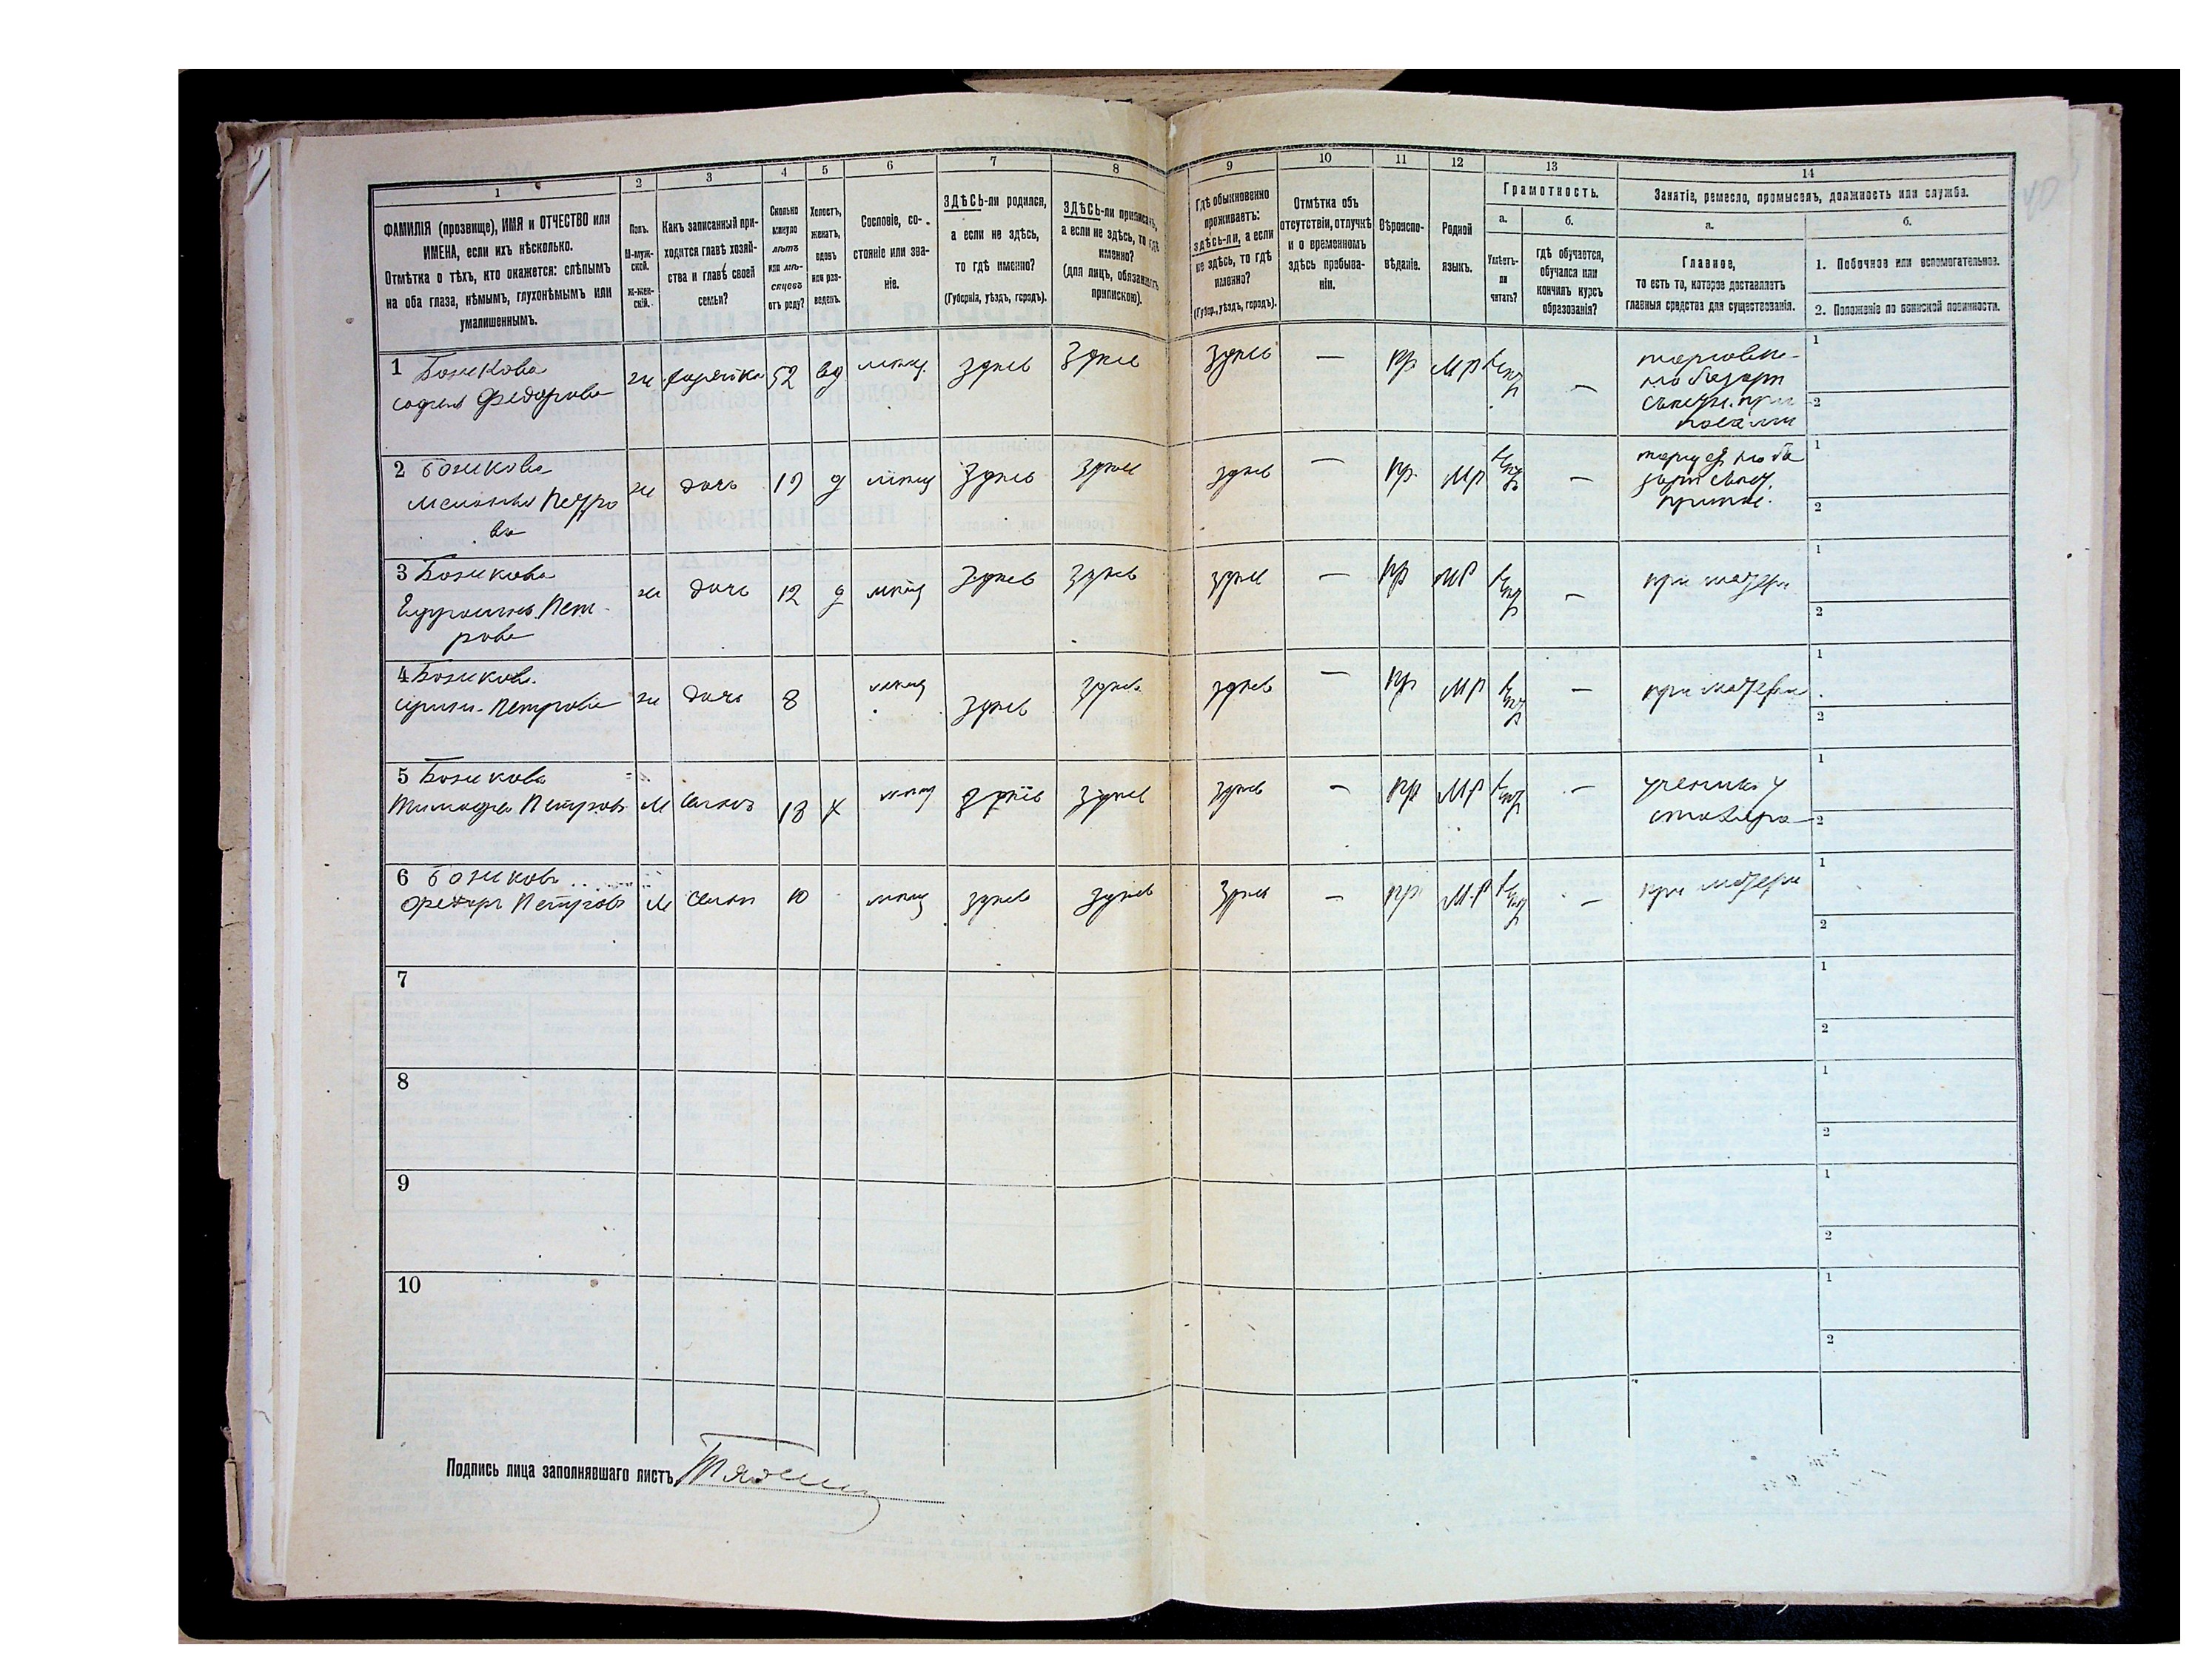 1 2 3 4 5 6 7 8 9 10 11 12 13 14
ФАМИЛІЯ (прозвище), ИМЯ и ОТЧЕСТВО или
ИМЕНА, если ихъ нѣсколько.
Отмѣтка о тѣхъ, кто окажется: слѣпымъ
на оба глаза, нѣмымъ, глухонѣмымъ или
умалишеннымъ.
Полъ.
М-муж-
ской.
ж-жен-
скій.
Какъ записанный при-
ходится главѣ хозяй-
ства и главѣ своей
семьи?
Сколько
минуло
лѣтъ
или мѣ-
сяцевъ
отъ роду?
Холостъ,
женатъ,
вдовъ
или раз-
веденъ.
Сословіе, со-
стояніе или зва-
ніе.
ЗДѢСЬ-ли родился,
а если не здѣсь,
то гдѣ именно?
(Губернія, уѣздъ, городъ).
ЗДѢСЬ-ли приписанъ,
а если не здѣсь, то гдѣ
именно?
(для лицъ, обязанныхъ
припискою).
Гдѣ обыкновенно
проживаетъ:
здѣсь-ли, а если
не здѣсь, то гдѣ
именно?
(Губер., уѣздъ, городъ).
Отмѣтка объ
отсутствіи, отлучкѣ
и о временномъ
здѣсь пребыва-
ніи.
Вѣроиспо-
вѣданіе.
Родной
языкъ.
Грамотность.
а. б.
Умѣетъ-
ли
читать?
гдѣ обучается,
обучался или
кончилъ курсъ
образованія?
Занятіе, ремесло, промыселъ, должность или служба.
а. б.
Главное,
то есть то, которое доставляетъ
главныя средства для существованія.
1. Побочное или вспомогательное.
2. Положеніе по воинской повинности.
1 Божкова ж 52 вд мѣщ. здѣсь здѣсь здѣсь — пр МР нѣтъ — 1
Федорова 2
2 Божкова ж дочь 19 д мѣщ здѣсь здѣсь здѣсь — пр. МР нѣтъ — 1
Петро
ва 2
3 Божкова ж дочь 12 д мѣщ здѣсь здѣсь здѣсь — пр МР нѣтъ — при матери 1
Пет-
рова 2
4 Божкова ж дочь 8 мѣщ здѣсь здѣсь здѣсь — пр МР нѣтъ — при матери 1
Петрова 2
5 Божковъ М сынъ 13 х мѣщ здѣсь здѣсь здѣсь — пр МР нѣтъ — ученикъ у 1
Тимофей Петровъ столяра 2
6 Божковъ М сынъ 10 мѣщ здѣсь здѣсь здѣсь — пр МР нѣтъ — при матери 1
Федоръ Петровъ 2
7 1
2
8 1
2
9 1
2
10 1
2
Подпись лица заполнявшаго листъ